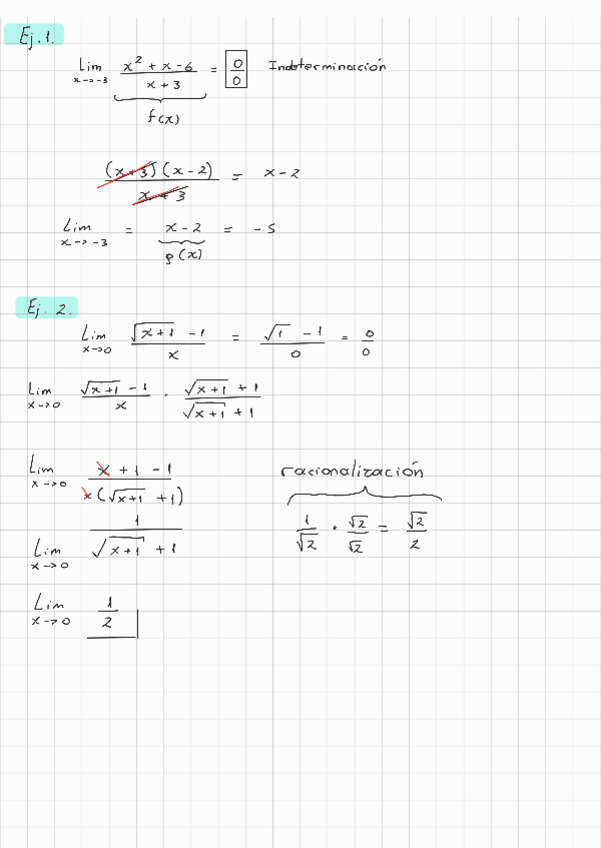 Ej. 1.
Lim x→-3 (x² + x - 6)/(x + 3) = 0/0 Indeterminación
f(x)
(x+3)(x-2)/(x+3) = x-2
Lim x→-3 = x-2 = -5
g(x)
Ej. 2.
Lim x→0 (√(x+1) - 1)/x = (√1 - 1)/0 = 0/0
Lim x→0 (√(x+1) - 1)/x · (√(x+1) + 1)/(√(x+1) + 1)
Lim x→0 (x + 1 - 1)/(x(√(x+1) + 1))
racionalización
Lim x→0 1/(√(x+1) + 1)
1/√2 · √2/√2 = √2/2
Lim x→0 1/2